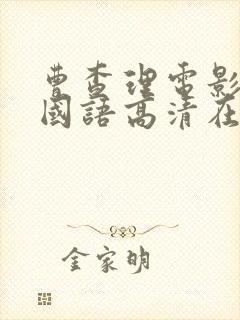 曹查理電影
國語高清在
金家明